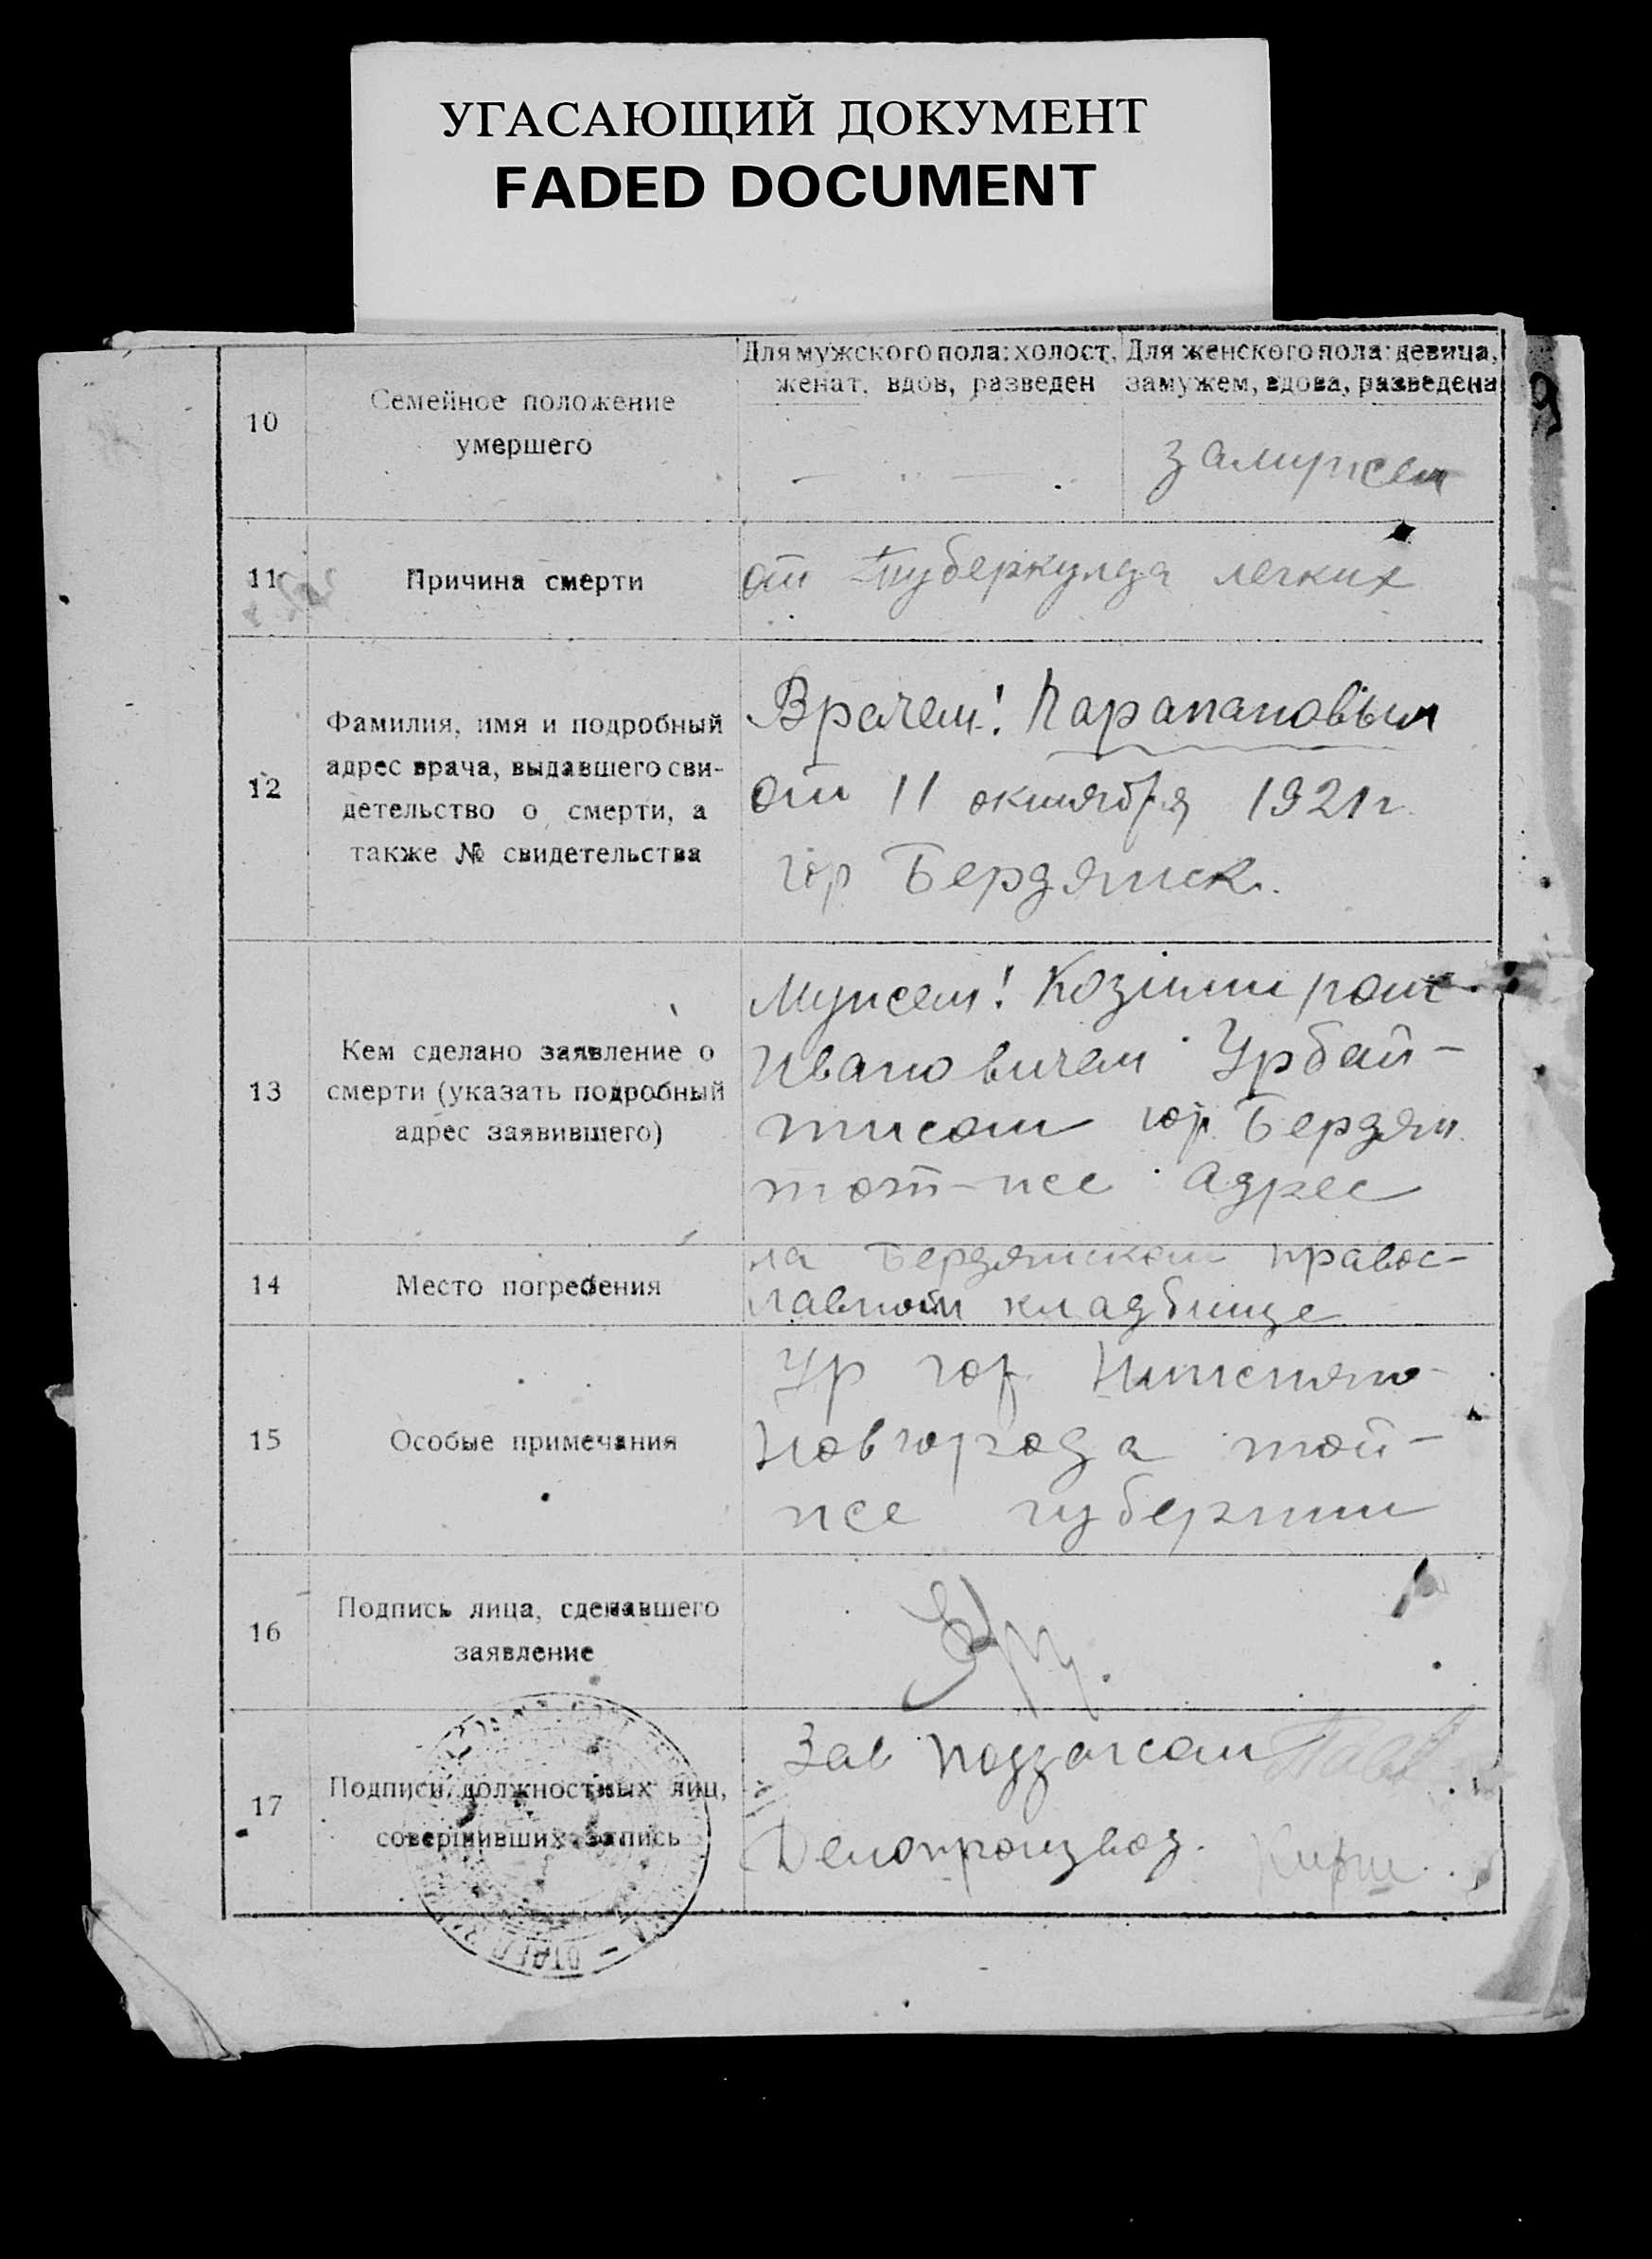 УГАСАЮЩИЙ ДОКУМЕНТ
FADED DOCUMENT
10
Семейное положение
умершего
Для мужского пола: холост,
женат, вдов, разведен
Для женского пола: девица,
замужем, вдова, разведена
замужем
11
Причина смерти
от туберкулеза легких
12
Фамилия, имя и подробный
адрес врача, выдавшего сви-
детельство о смерти, а
также № свидетельства
Врачем! Карапановым
от 11 октября 1921 г.
гор Бердянск.
13
Кем сделано заявление о
смерти (указать подробный
адрес заявившего)
Мужем! Козимиром
Ивановичем Урбай-
тисом гор. Бердян.
тот-же адрес
14
Место погребения
на Бердянском правос-
лавном кладбище
15
Особые примечания
Ур гор. Нижняго-
Новгорода той-
же губернии
16
Подпись лица, сделавшего
заявление
17
Подписи должностных лиц,
совершивших запись
Зав подзагсом
Делопроизвод.
ОТДЕЛ